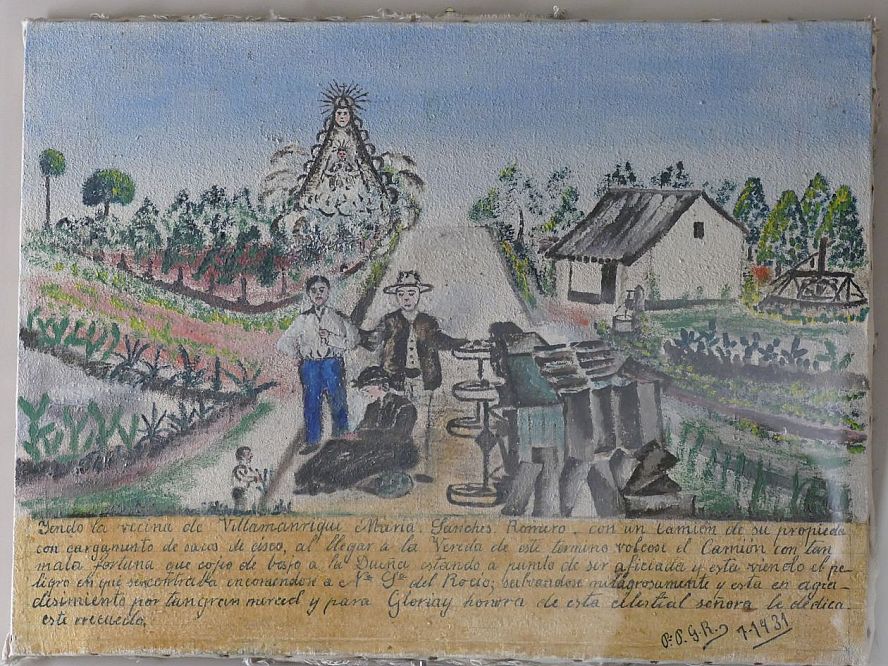 Yendo la vecina de Villamanrique Maria Sanches Romero, con un Camión de su propieda
con cargamento de sacos de cisco, al llegar a la Vereda de este termino volcose el Camión con tan
mala fortuna que cojio de bajo a la Dueña estando a punto de ser aficiada y esta viendo el pe-
ligro en que sencontraba encomendose a Nª Sª del Rocio; salvandose milagrosamente y esta en agra-
disimiento por tan gran merced y para Gloria y honora de esta celestial señora le dedica
este recuerdo.
P. P. G. R. 7-1931